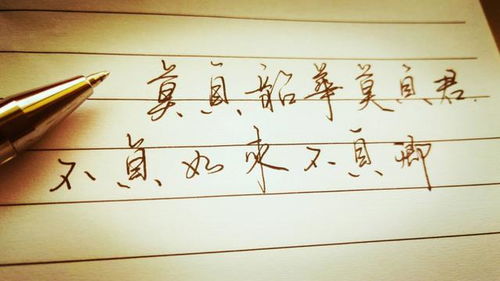 莫負韶華莫負君
不負如來不負卿